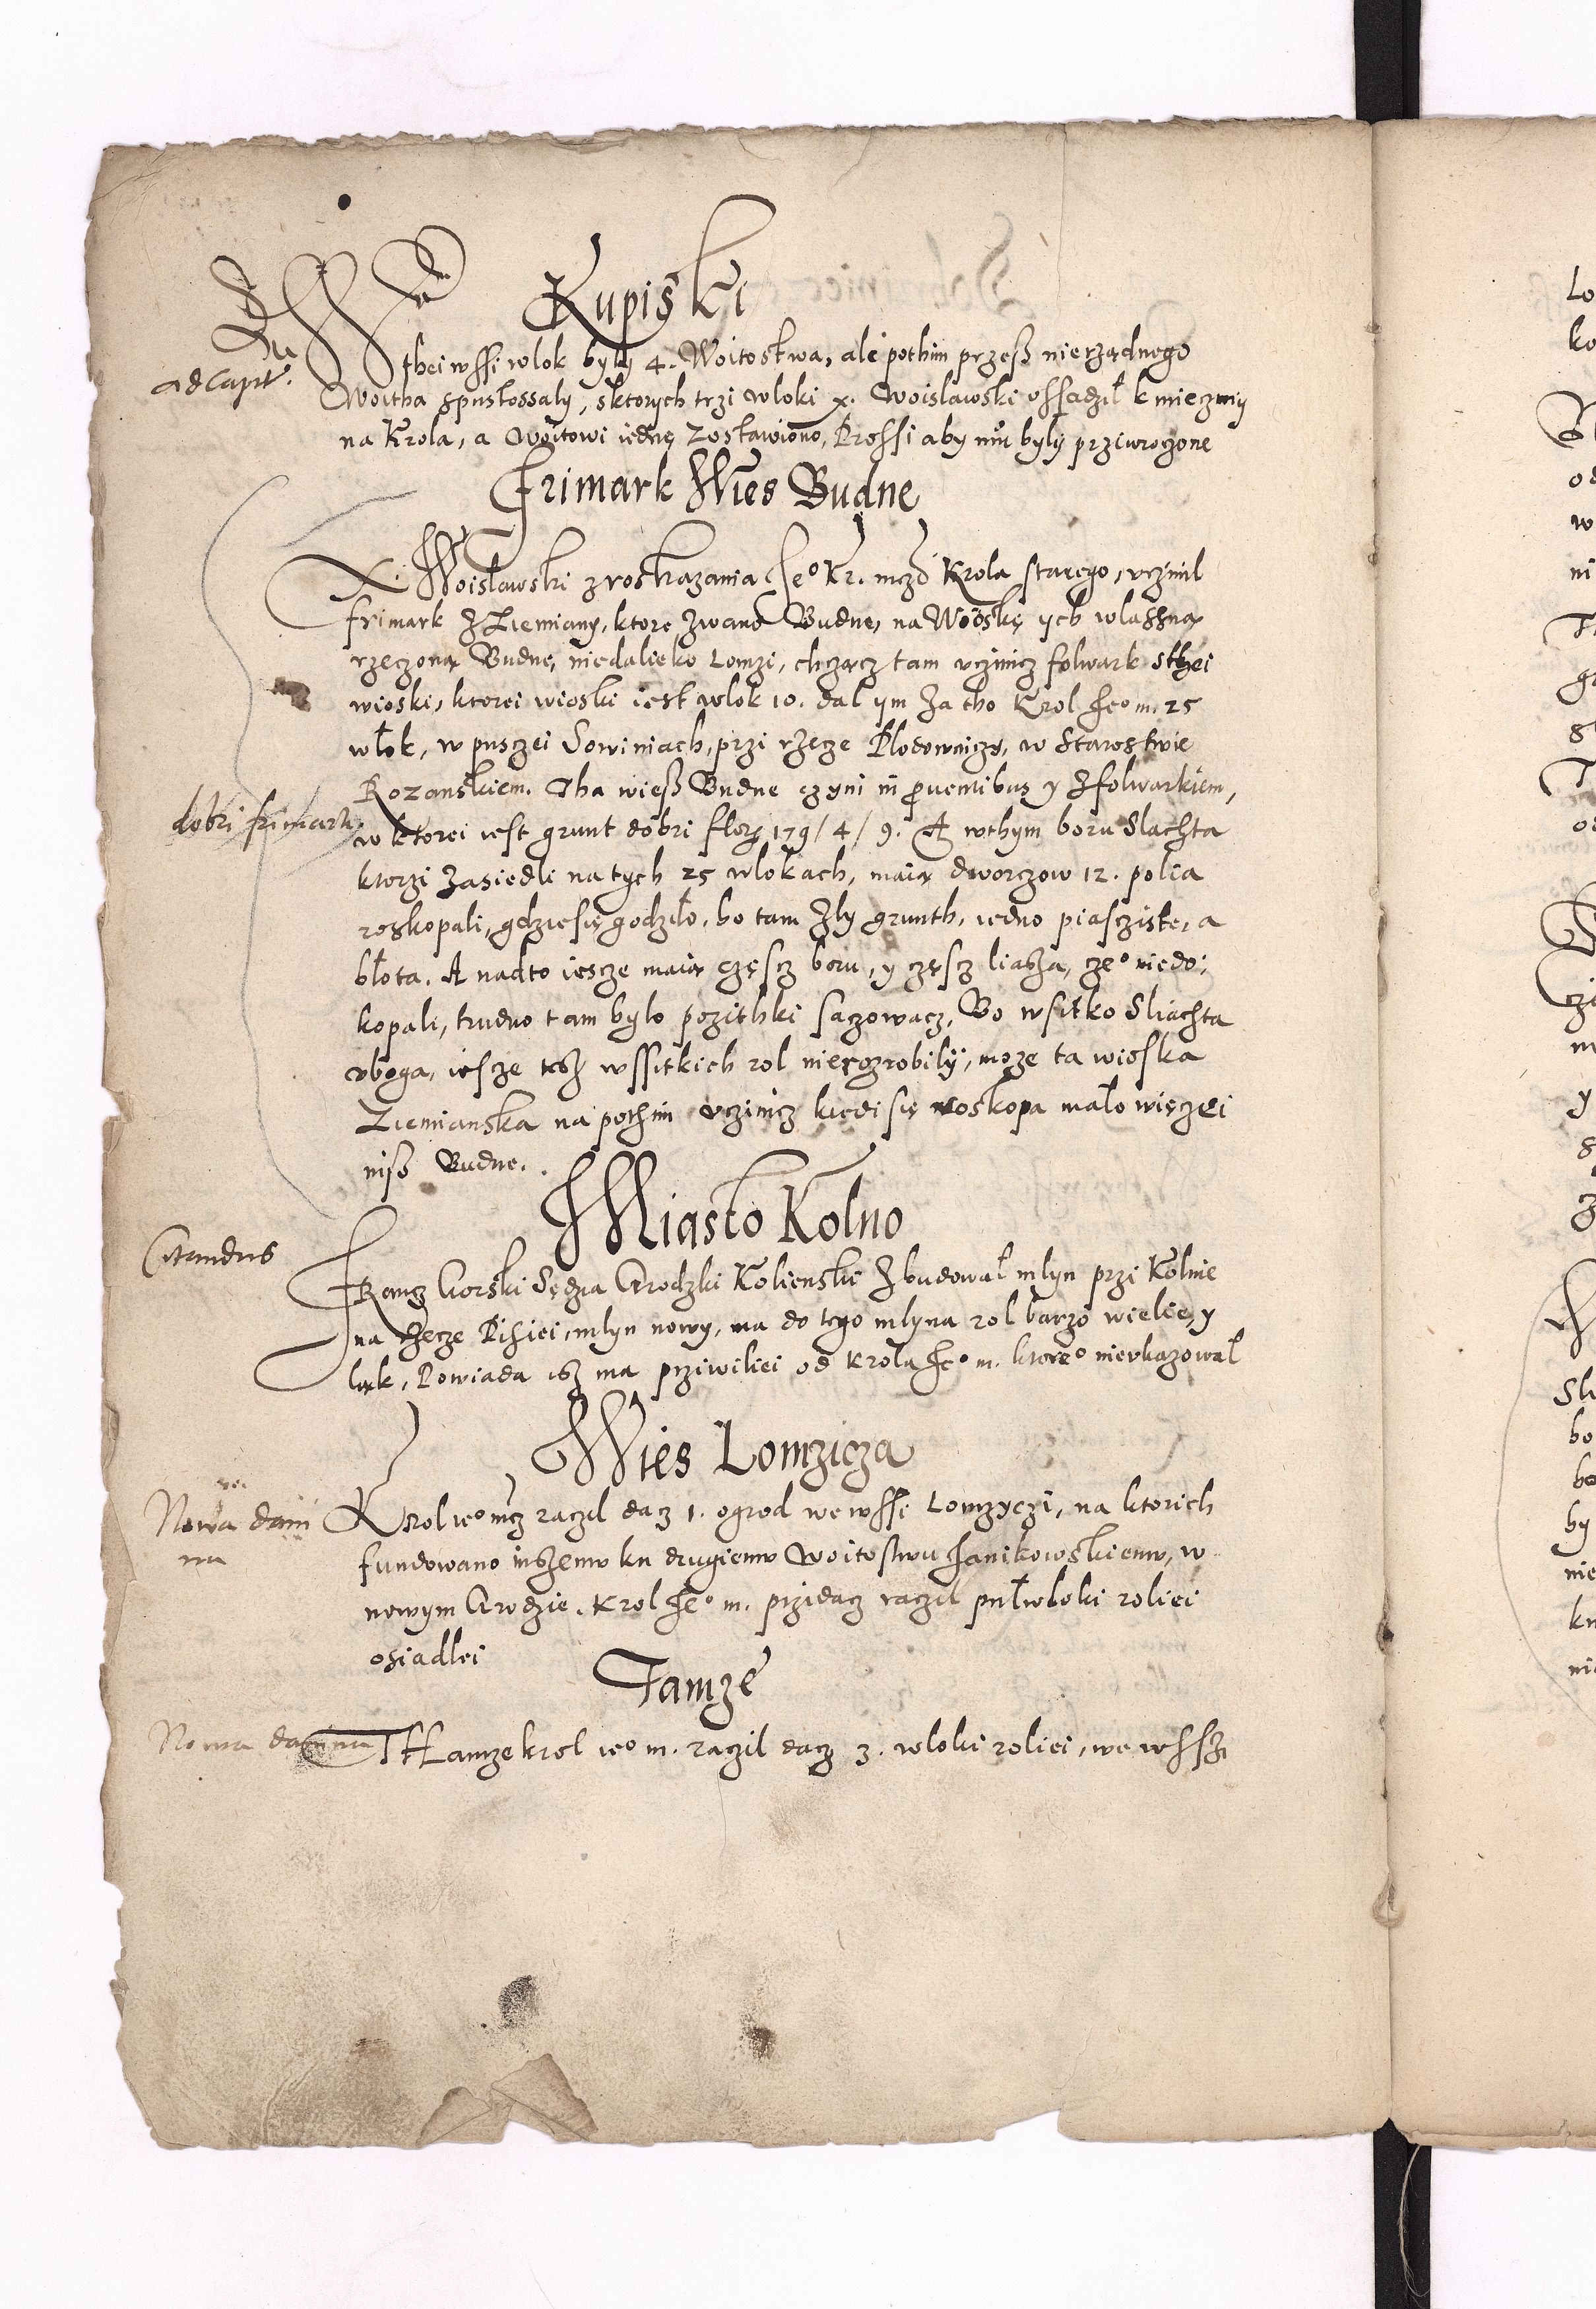 Kupiski
ad Capit.
W thei wssi wlok byly 4. Woitostwa, ale pothim przesz nierządnego
Woitha spustossaly, sktorych trzi wloki x. Woislawski ossadzil kmieczmy
na Krola, a Woitowi iednę zostawiono, Prossi aby mu byly przywroczone
Frimark Wies Budne
X. Woislawski z roskazania Jeo Kr. mczi Krola starego, vczinil
frimark z Ziemiany, ktore zwano Budne, na Wioskę ych wlassną
rzeczoną Budne, niedalieko Lomzi, chcącz tam vczinicz folwark sthei
wioski, ktorei wioski iest wlok 10. dal ym za tho Krol Jeo m. 25
włok, w pusczei Sowiniach, przi rzecze Plodownicze, w Starostwie
Rozanskiem. Tha wiesz Budne czyni in prouentibus y z folwarkiem,
dobri frimark
w ktorei iest grunt dobri flor 179/4/9. A wthym boru Slachta
ktorzi zasiedli na tych 25 wlokach, maią dworczow 12. polia
roskopali, gdzie się godziło, bo tam zly grunth, iedno piascziste, a
błota. A nadto iescze maią częscz boru, y częscz liassa, czeo niedo;
kopali, trudno tam bylo pozithki saczowacz, Bo wsitko Sliachta
vboga, iescze tesz wssitkich rol nierozrobily, moze ta wioska
Ziemianska na pothim vczinicz kiedi się roskopa mało więczei
nisz Budne.
Miasto Kolno
Citandus
Francz Gorski Sędzia Grodzki Kolienski zbudował mlyn przi Kolnie
na rzecze Pisiei, mlyn nowy, ma do tego mlyna rol barzo wielie, y
ląk, Powiada isz ma prziwiliei od Krola Jeo m. ktoreo nievkazował
Wies Lomzicza
Nowa dani
na
Krol ieo mcz raczil dacz 1. ogrod we wssi Lomzyczi, na ktorich
fundowano inszemv ku drugiemv Woitostwu Janikowskiemv, w
nowym Grodzie. Krol Jeo m. przidacz raczil pułwloki roliei
osiadlei
Tamze
Nowa danina
Thamze krol ieo m. raczil dacz 3. wloki roliei, we wssi